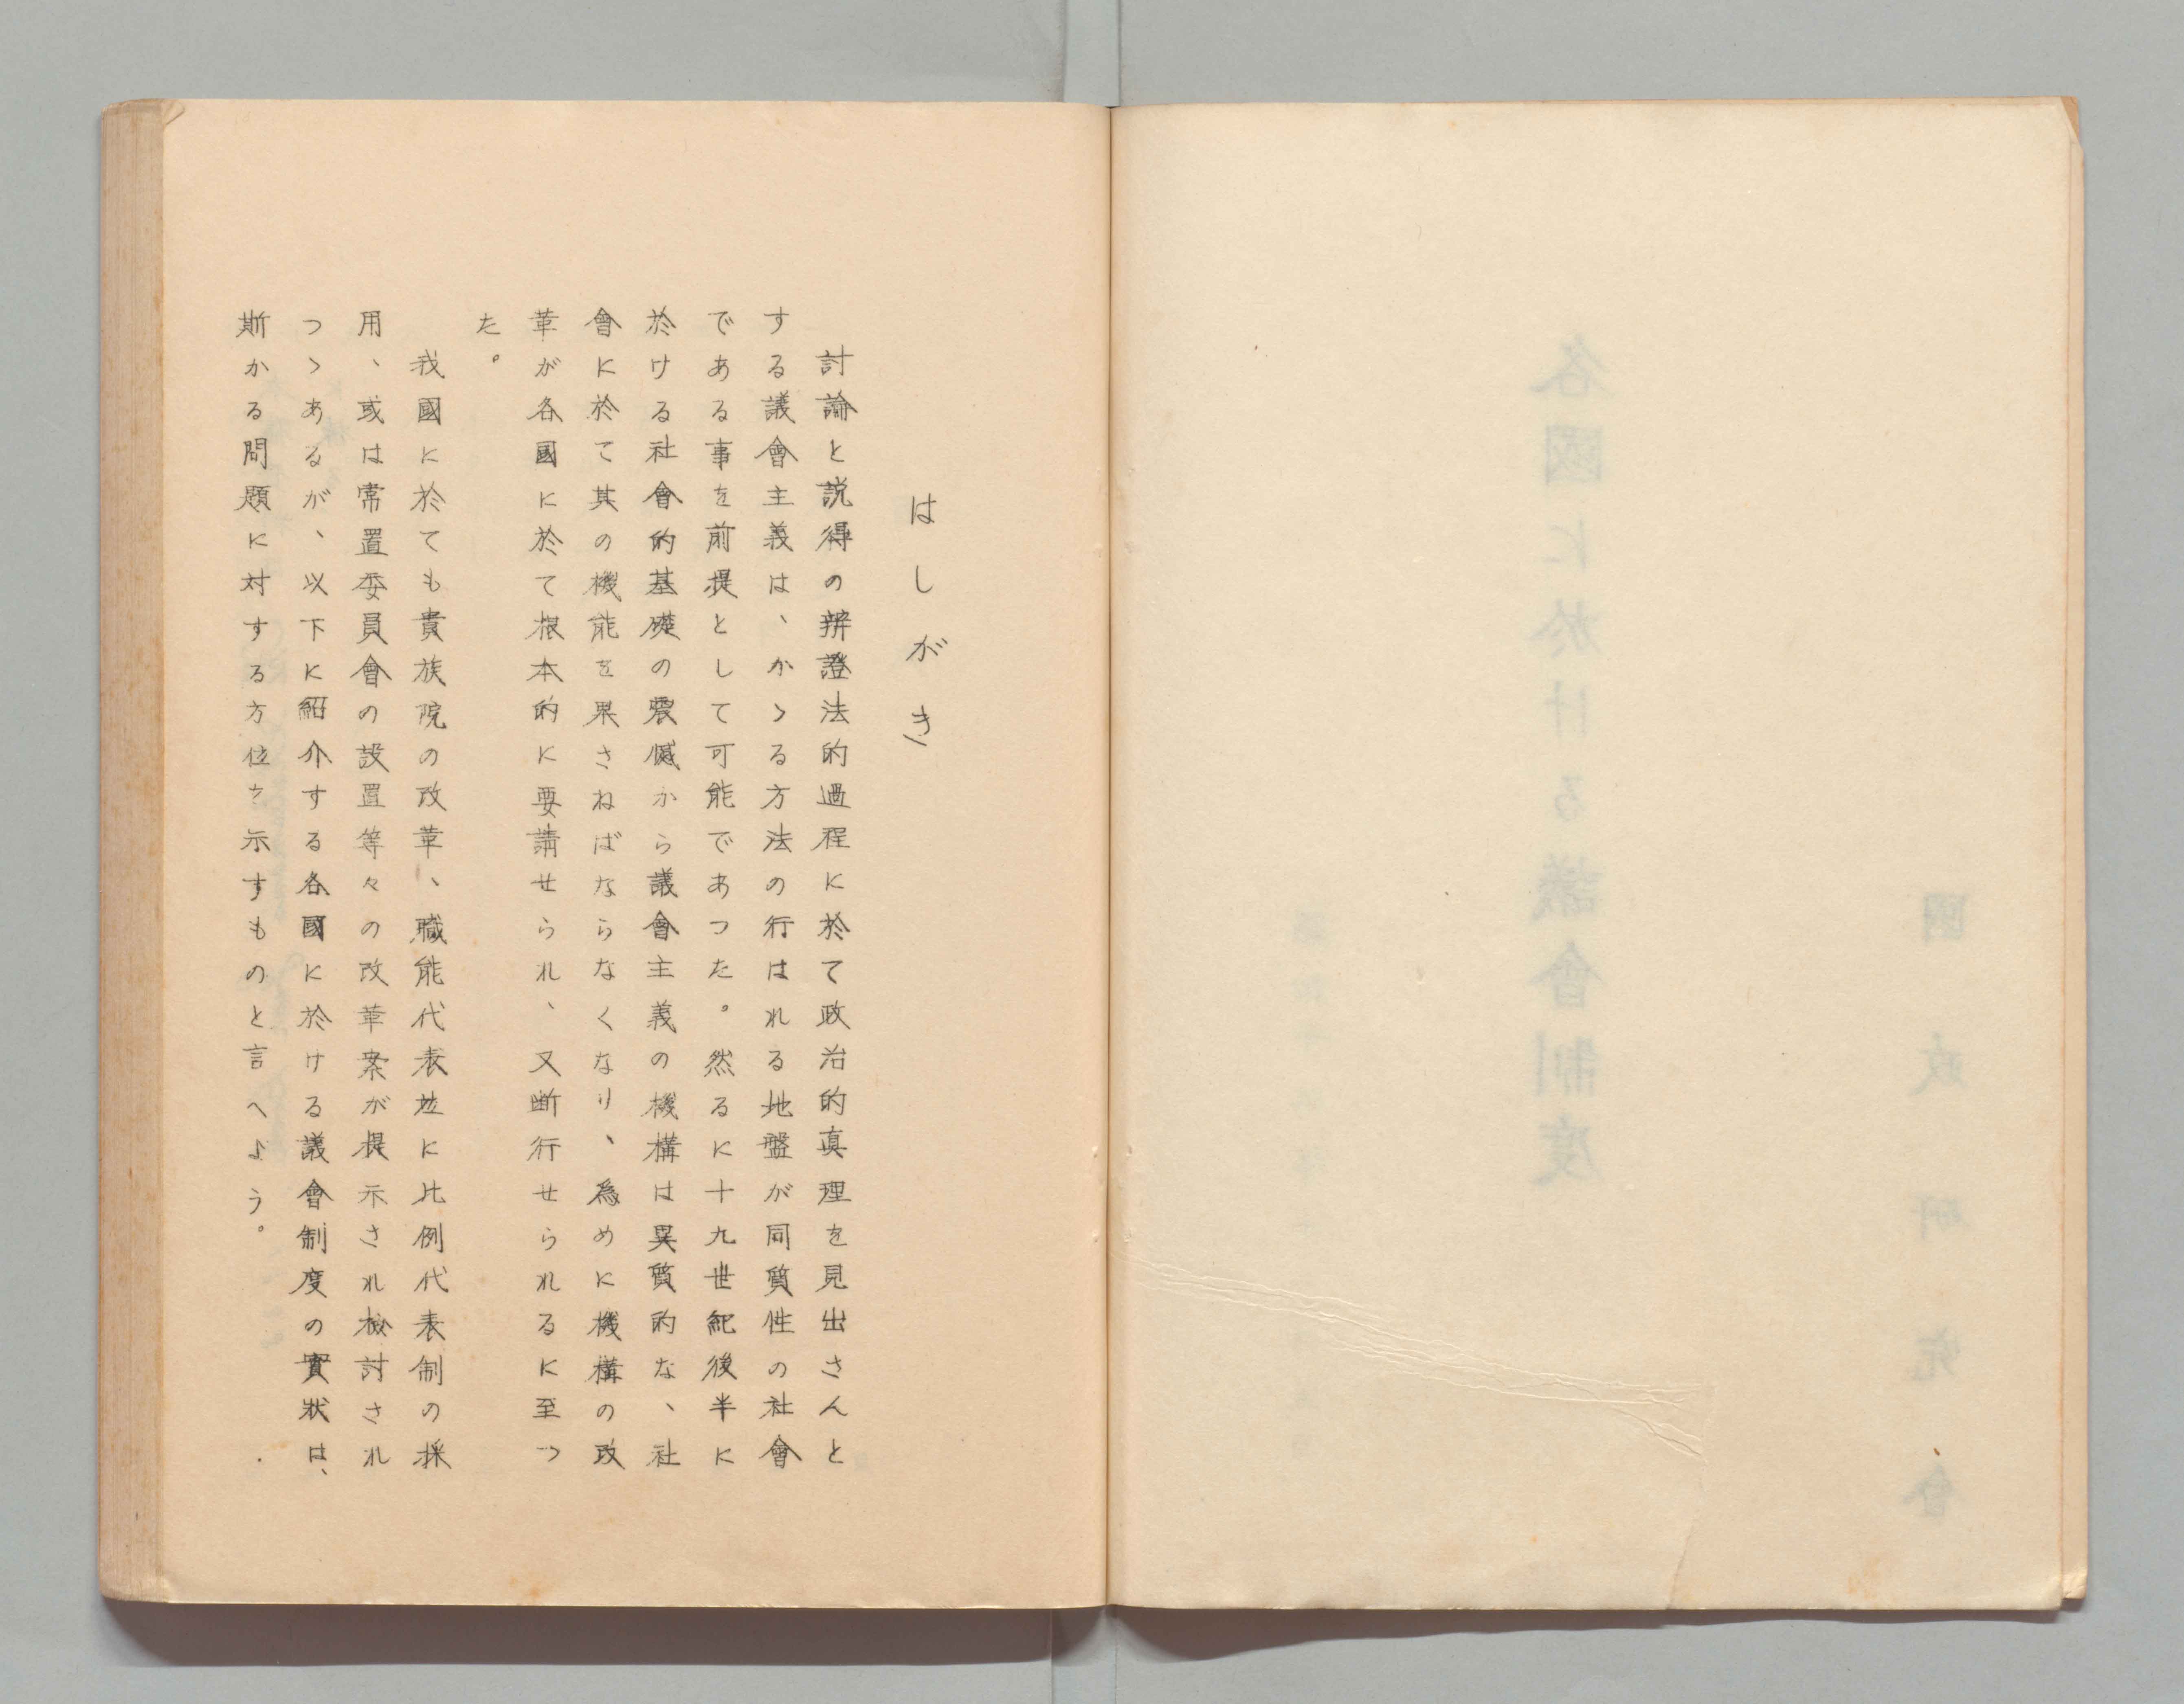 はしがき
討論と説得の辨證法的過程に於て政治的真理を見出さんと
する議會主義は、かゝる方法の行はれる地盤が同質性の社會
である事を前提として可能であつた。然るに十九世紀後半に
於ける社會的基礎の震憾から議會主義の機構は異質的な、社
會に於て其の機能を果さねばならなくなり、為めに機構の改
革が各國に於て根本的に要請せられ、又断行せられるに至つ
た。
我國に於ても貴族院の改革、職能代表並に比例代表制の採
用、或は常置委員會の設置等々の改革案が提示され検討され
つゝあるが、以下に紹介する各國に於ける議會制度の實状は、
斯かる問題に対する方位を示すものと言へよう。